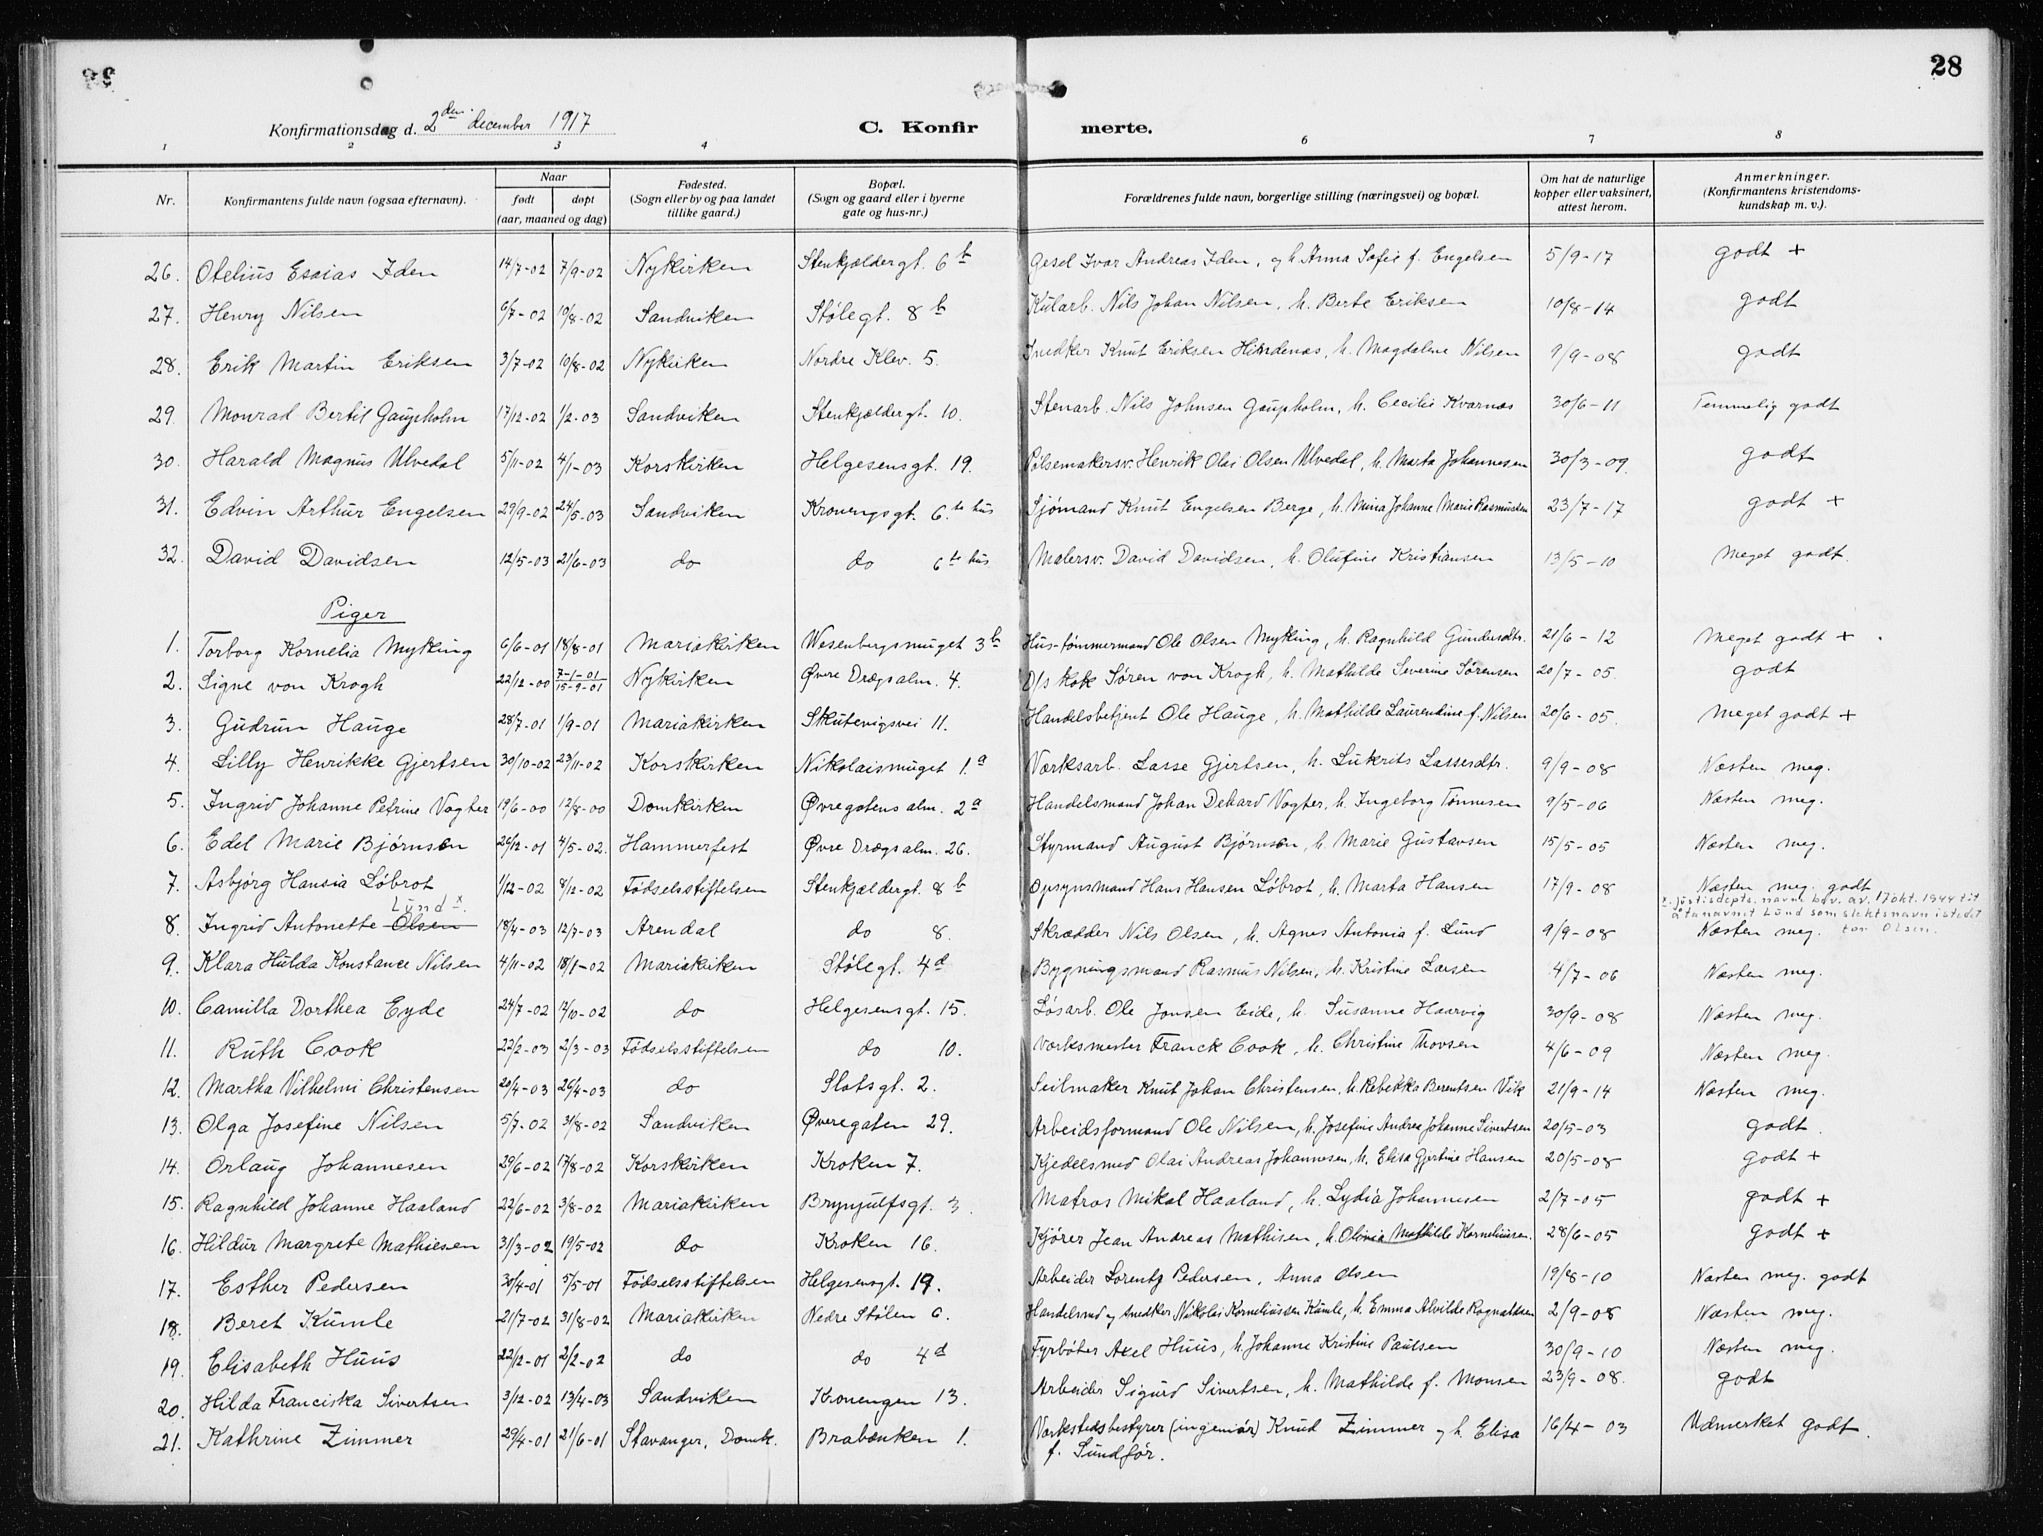 28
Konfirmationsdag d. 2den december 1917 C. Konfirmerte.
1 2 3 4 6 7 8
Nr. Konfirmantens fulde navn (ogsaa efternavn). Naar født døpt (aar, maaned og dag) Fødested. (Sogn eller by og paa landet tillike gaard.) Bopæl. (Sogn og gaard eller i byerne gate og hus-nr.) Forældrenes fulde navn, borgerlige stilling (næringsvei) og bopæl. Om hat de naturlige kopper eller vaksinert, attest herom. Anmerkninger. (Konfirmantens kristendomskundskap m. v.).
26. Otelius Esaias Iden 14/7-02 7/9-02 Nykirken Stenkjeldergt. 6b Gesel Ivar Andreas Iden, og h. Anna Sofie f. Engelsen 5/9-17 godt +
27. Henry Nilsen 6/7-02 10/8-02 Sandviken Stølegt. 8b Kularb. Nils Johan Nilsen, h. Berte Eriksen 10/8-14 godt
28. Erik Martin Eriksen 3/7-02 10/8-02 Nykirken Nordre Klev. 5. Snedker Knut Eriksen Hindenas, h. Magdalene Nilsen 9/9-08 godt
29. Monrad Bertil Gaupholm 17/12-02 1/2-03 Sandviken Stenkjeldergt. 10. Stenarb. Nils Johnsen Gaupholm, h. Cecilie Kvarnas 30/6-11 Temmelig godt
30. Harald Magnus Ulvedal 5/11-02 4/1-03 Korskirken Helgesensgt. 19. Pølsemakersv. Henrik Olai Olsen Ulvedal, h. Marta Johannesen 30/3-09. godt
31. Edvin Arthur Engelsen 29/9-02 24/5-03 Sandviken Kronengsgt. 6.te hus Sjømand Knut Engelsen Berge, h. Mina Johanne Marie Rasmussen 23/7-17 godt +
32. David Davidsen 12/5-03 21/6-03 do do 6te hus Malersv. David Davidsen, h. Olufine Kristiansen 13/5-10 Meget godt
Piger
1. Torborg Kornelia Myking 6/6-01 18/8-01 Mariakirken Wesenbergsmuget 3b Hus-tømmermand Ole Olsen Myking, h. Ragnhild Gundersdtr. 21/6-12 Meget godt +
2. Signe von Krogh 22/12-00 7-1-01 15-9-01 Nykirken Øvre Dregsalm. 4. D/s kok Søren von Krogh, h. Mathilde Severine Sørensen 20/7-05. godt
3. Gudrun Hauge 28/7-01 1/9-01 Mariakirken Skutevigsvei 11. Handelsbetjent Ole Hauge, h. Mathilde Laurendine f. Nilsen 20/6-05. Meget godt +
4. Lilly Henrikke Gjertsen 30/10-02 23/11-02 Korskirken Nikolaismuget 1a Værksarb. Lasse Gjertsen, h. Lukrits Lassesdtr. 9/9-08 Næsten meg.
5. Ingrid Johanne Petrine Vogter 19/6-00 12/8-00 Domkirken Øvregatens alm. 2a Handelsmand Johan Dehard Vogter, h. Ingeborg Tønnesen 9/5-06 Næsten meg.
6. Edel Marie Bjørnsen 26/12-01 4/5-02. Hammerfest Øvre Dregsalm. 26. Styrmand August Bjørnsen, h. Marie Gustavsen 15/5-05 Næsten meg.
7. Asbjørg Hansia Løbrot 1/12-02 8/12-02 Fødselsstiftelsen Stenkjeldergt. 8b Opsynsmand Hans Hansen Løbrot, h. Marta Hansen 17/9-08 Næsten meg. godt
Lund x x. justisdepts. navnebev. av. 17 okt. 1944 til å ta navnet Lund som slektsnavn istedet for Olsen.
8. Ingrid Antonette Olsen 18/4-03 12/7-03 Arendal do 8. Skrædder Nils Olsen, h. Agnes Antonia f. Lund 9/9-08 Næsten meg.
9. Klara Hulda Konstance Nilsen 4/11-02 18/1-02 Mariakirken Stølegt. 4d Bygningsmand Rasmus Nilsen, h. Kristine Larsen 4/7-06 Næsten meg.
10. Camilla Dorthea Eyde 24/7-02 12/10-02 do Helgesensgt. 15. Løsarb. Ole Jonsen Eide, h. Susanne Haarvig 30/9-08 Næsten meg.
11. Ruth Cook 22/2-03 2/3-03 Fødselsstiftelsen do 10. Værksmester Franck Cook, h. Christine Thovsen 4/6-09 Næsten meg.
12. Martha Vilhelmi Christensen 20/4-03 26/4-03 do Slotsgt. 2. Seilmaker Knut Johan Christensen, h. Rebekka Berentsen Vik 21/9-14 Næsten meg.
13. Olga Josefine Nilsen 5/7-02 31/8-02 Sandviken Øvregaten 29. Arbeidsformand Ole Nilsen, h. Josefine Andrea Johanne Sivertsen 20/5-03 godt
14. Orlaug Johannesen 29/6-02 17/8-02 Korskirken Kroken 7. Kjedelsmed Olai Andreas Johannesen, h. Elisa Gjertine Hansen 20/5-08 godt +
15. Ragnhild Johanne Haaland 22/6-02 3/8-02 Mariakirken Brynjulfsgt. 3. Matros Mikal Haaland, h. Lydia Johannesen 2/7-05 godt +
16. Hildur Margrete Mathiesen 31/3-02 19/5-02 do Kroken 16. Kjører Jean Andreas Mathisen, h. Olivia Mathilde Korneliussen. 28/6-05 godt +
17. Esther Pedersen 30/4-01 5/5-01 Fødselsstiftelsen Helgesensgt. 19. Arbeider Lorentz Pedersen, Anna Olsen 19/8-10 Næsten meg. godt
18. Beret Kumle 21/7-02 31/8-02 Mariakirken Nedre Stølen 6. Handelsmd og snedker Nikolai Korneliussen Kumle, h. Emma Alvilde Ragnaldsen 2/9-08 Næsten meg.
19. Elisabeth Huus 22/12-01 2/2-02 do do 4d Fyrbøter Axel Huus, h. Johanne Kristine Paulsen 30/9-10 Næsten meg.
20. Hilda Franciska Sivertsen 3/12-02 13/4-03 Sandviken Kronengen 13. Arbeider Sigurd Sivertsen, h. Mathilde f. Monsen 23/9-08. godt
21. Kathrine Zimmer 29/4-01 21/6-01 Stavanger, Domk. Brabænken 1. Værkstedsbestyrer (ingeniør) Knud Zimmer og h. Elisa f. Sundfør. 16/4-03 Udmerket godt.